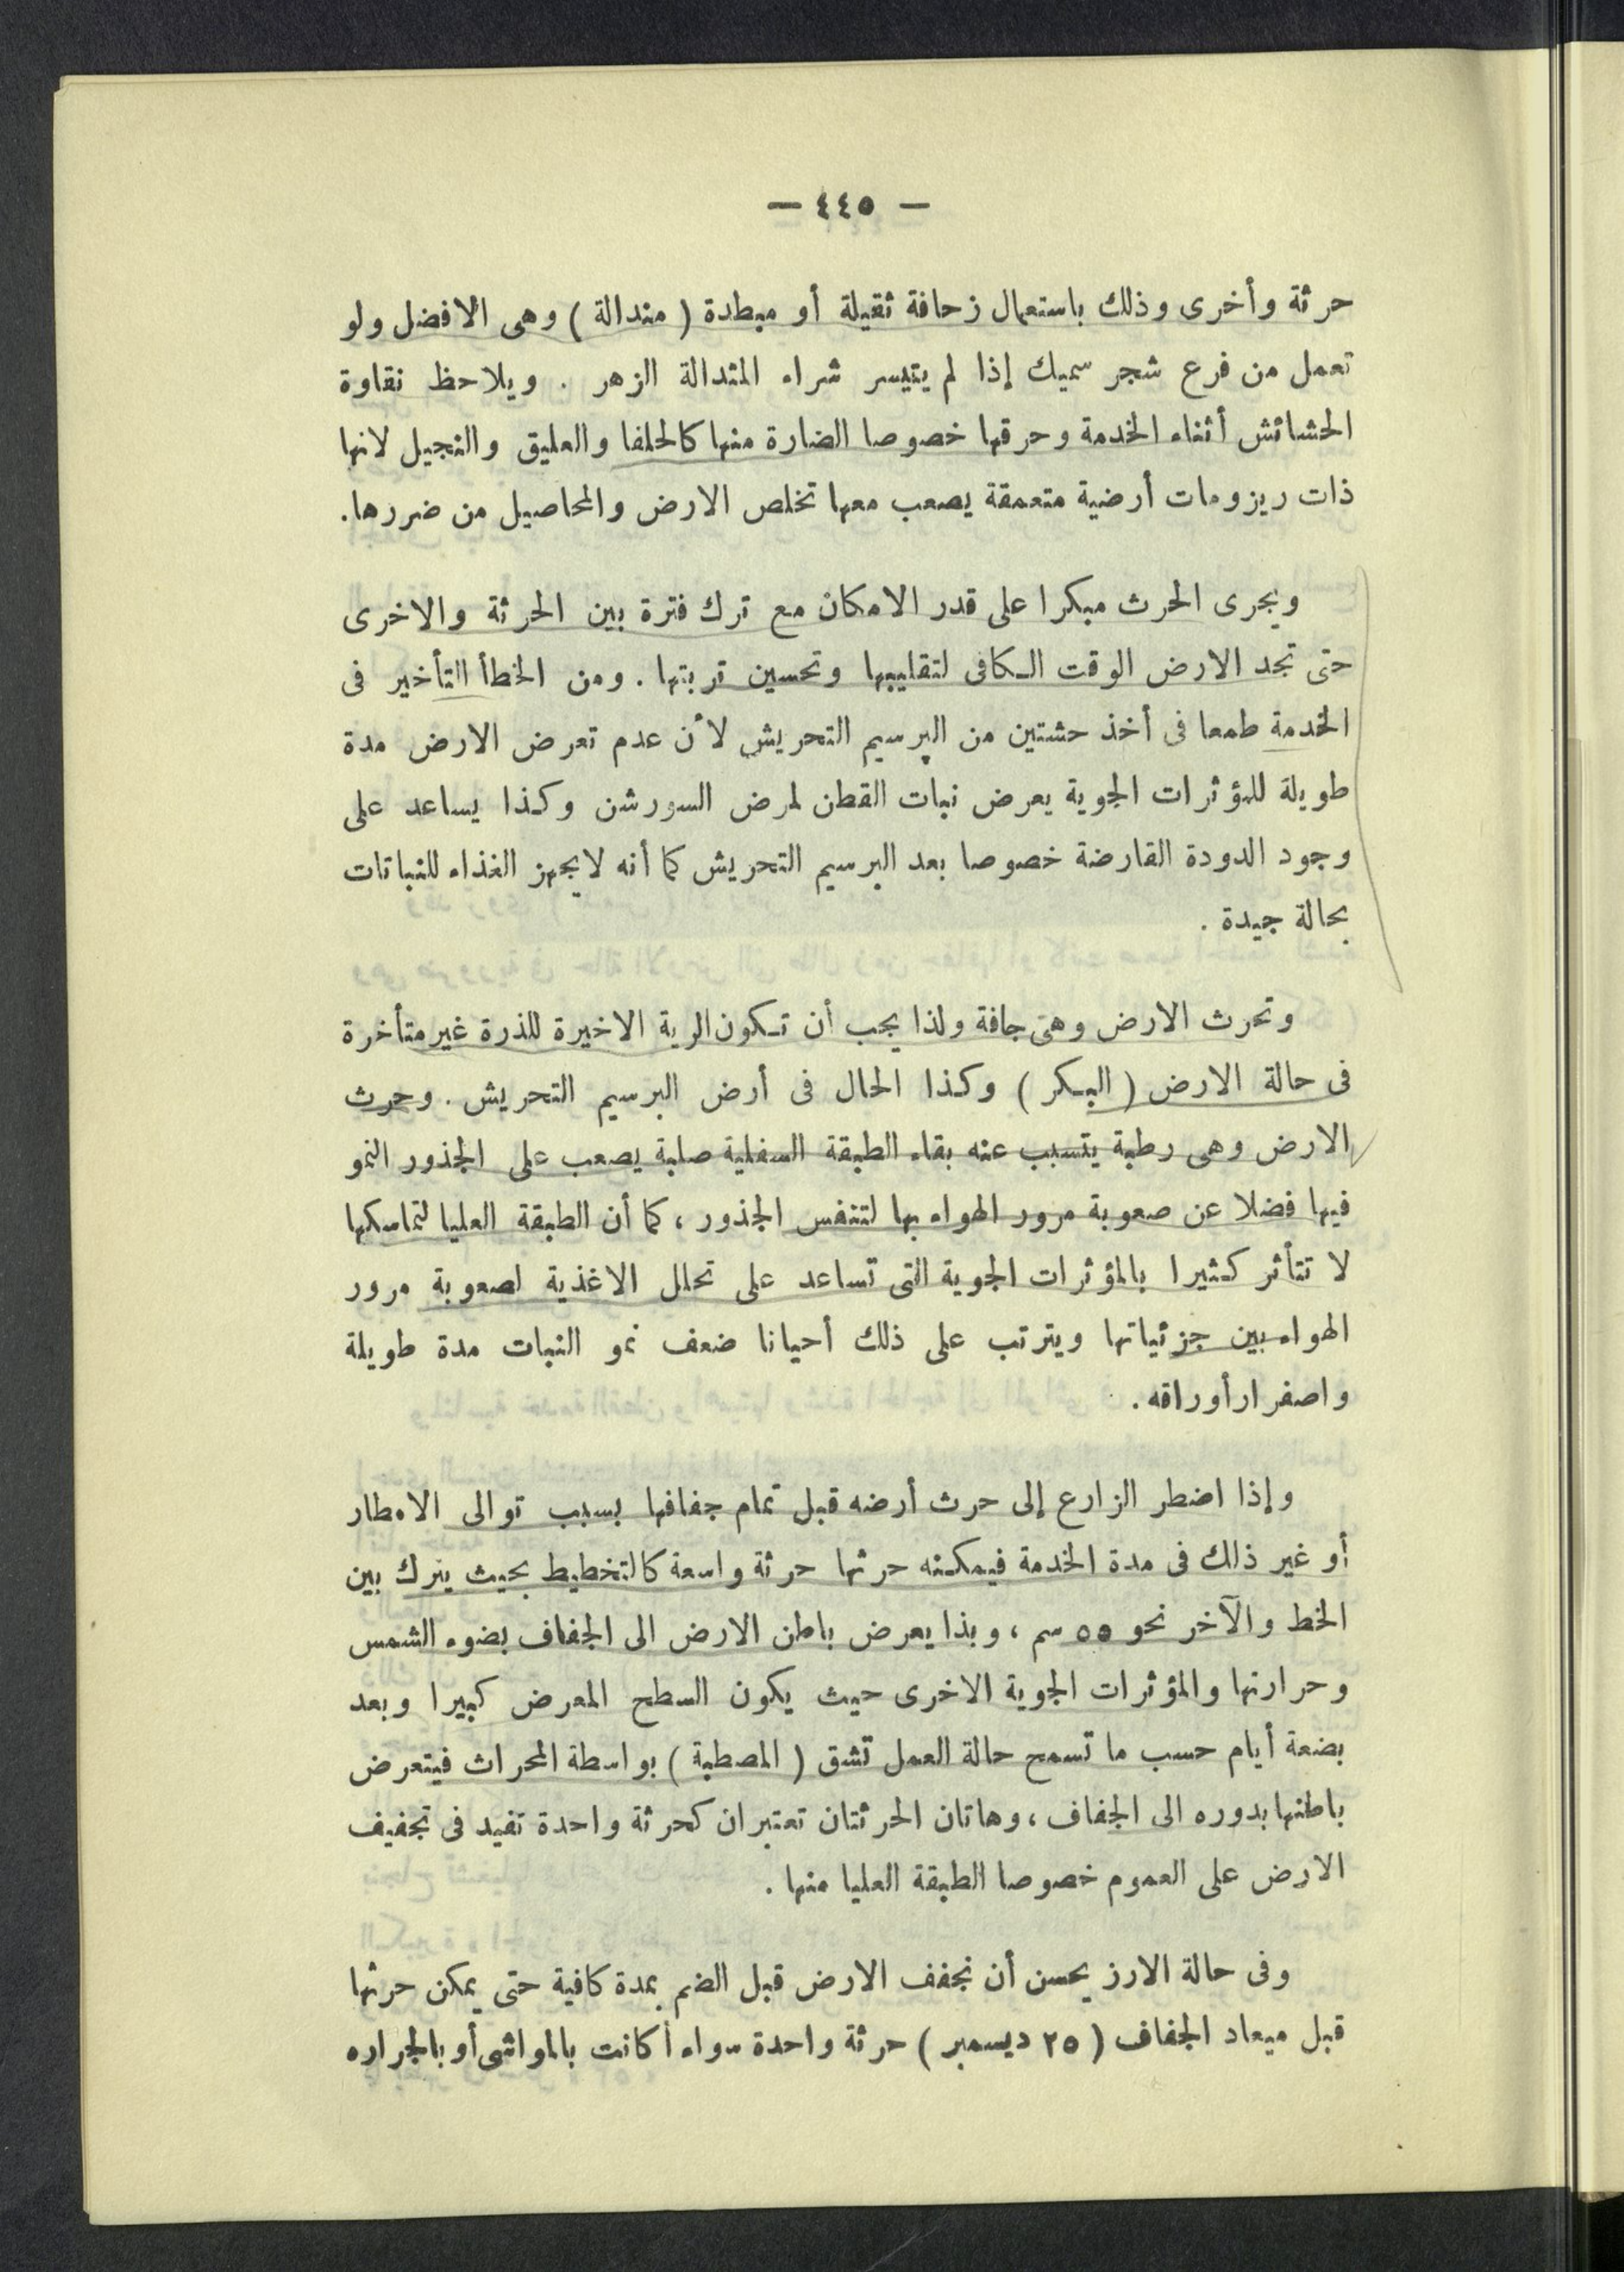 — ٤٤٥ —
حرثة وأخرى وذلك باستعمال زحافة ثقيلة أو مبطدة ( مندالة ) وهى الافضل ولو
تعمل من فرع شجر سميك إذا لم يتيسر شراء المندالة الزهر . ويلاحظ نقاوة
الحشائش أثناء الخدمة وحرقها خصوصا الضارة منها كالحلفا والعليق والنجيل لانها
ذات ريزومات أرضية متعمقة يصعب معها تخلص الارض والمحاصيل من ضررها.
ويجرى الحرث مبكرا على قدر الامكان مع ترك فترة بين الحرثة والاخرى
حتى تجد الارض الوقت الكافى لتقليبها وتحسين تربتها . ومن الخطأ التأخير فى
الخدمة طمعا فى أخذ حشتين من البرسيم التحريش لأن عدم تعرض الارض مدة
طويلة للمؤثرات الجوية يعرض نبات القطن لمرض السورشن وكذا يساعد على
وجود الدودة القارضة خصوصا بعد البرسيم التحريش كما أنه لا يجهز الغذاء للنباتات
بحالة جيدة .
وتحرث الارض وهى جافة ولذا يجب أن تكون الرية الاخيرة للذرة غير متأخرة
فى حالة الارض ( البكر ) وكذا الحال فى أرض البرسيم التحريش . وحرث
الارض وهى رطبة يتسبب عنه بقاء الطبقة السفلية صلبة يصعب على الجذور النمو
فيها فضلا عن صعوبة مرور الهواء بها لتنفس الجذور ، كما أن الطبقة العليا لتماسكها
لا تتأثر كثيرا بالمؤثرات الجوية التى تساعد على تحلل الاغذية لصعوبة مرور
الهواء بين جزئياتها ويترتب على ذلك أحيانا ضعف نمو النبات مدة طويلة
واصفرار أوراقه .
وإذا اضطر الزارع إلى حرث أرضه قبل تمام جفافها بسبب توالى الامطار
أو غير ذلك فى مدة الخدمة فيمكنه حرثها حرثة واسعة كالتخطيط بحيث يترك بين
الخط والآخر نحو ٥٥ سم ، وبذا يعرض باطن الارض الى الجفاف بضوء الشمس
وحرارتها والمؤثرات الجوية الاخرى حيث يكون السطح المعرض كبيرا وبعد
بضعة أيام حسب ما تسمح حالة العمل تشق ( المصطبة ) بواسطة المحراث فيتعرض
باطنها بدوره الى الجفاف ، وهاتان الحرثتان تعتبران كحرثة واحدة تفيد فى تجفيف
الارض على العموم خصوصا الطبقة العليا منها .
وفى حالة الارز يحسن أن نجفف الارض قبل الضم بمدة كافية حتى يمكن حرثها
قبل ميعاد الجفاف ( ٢٥ ديسمبر ) حرثة واحدة سواء أكانت بالمواشى أو بالجراره